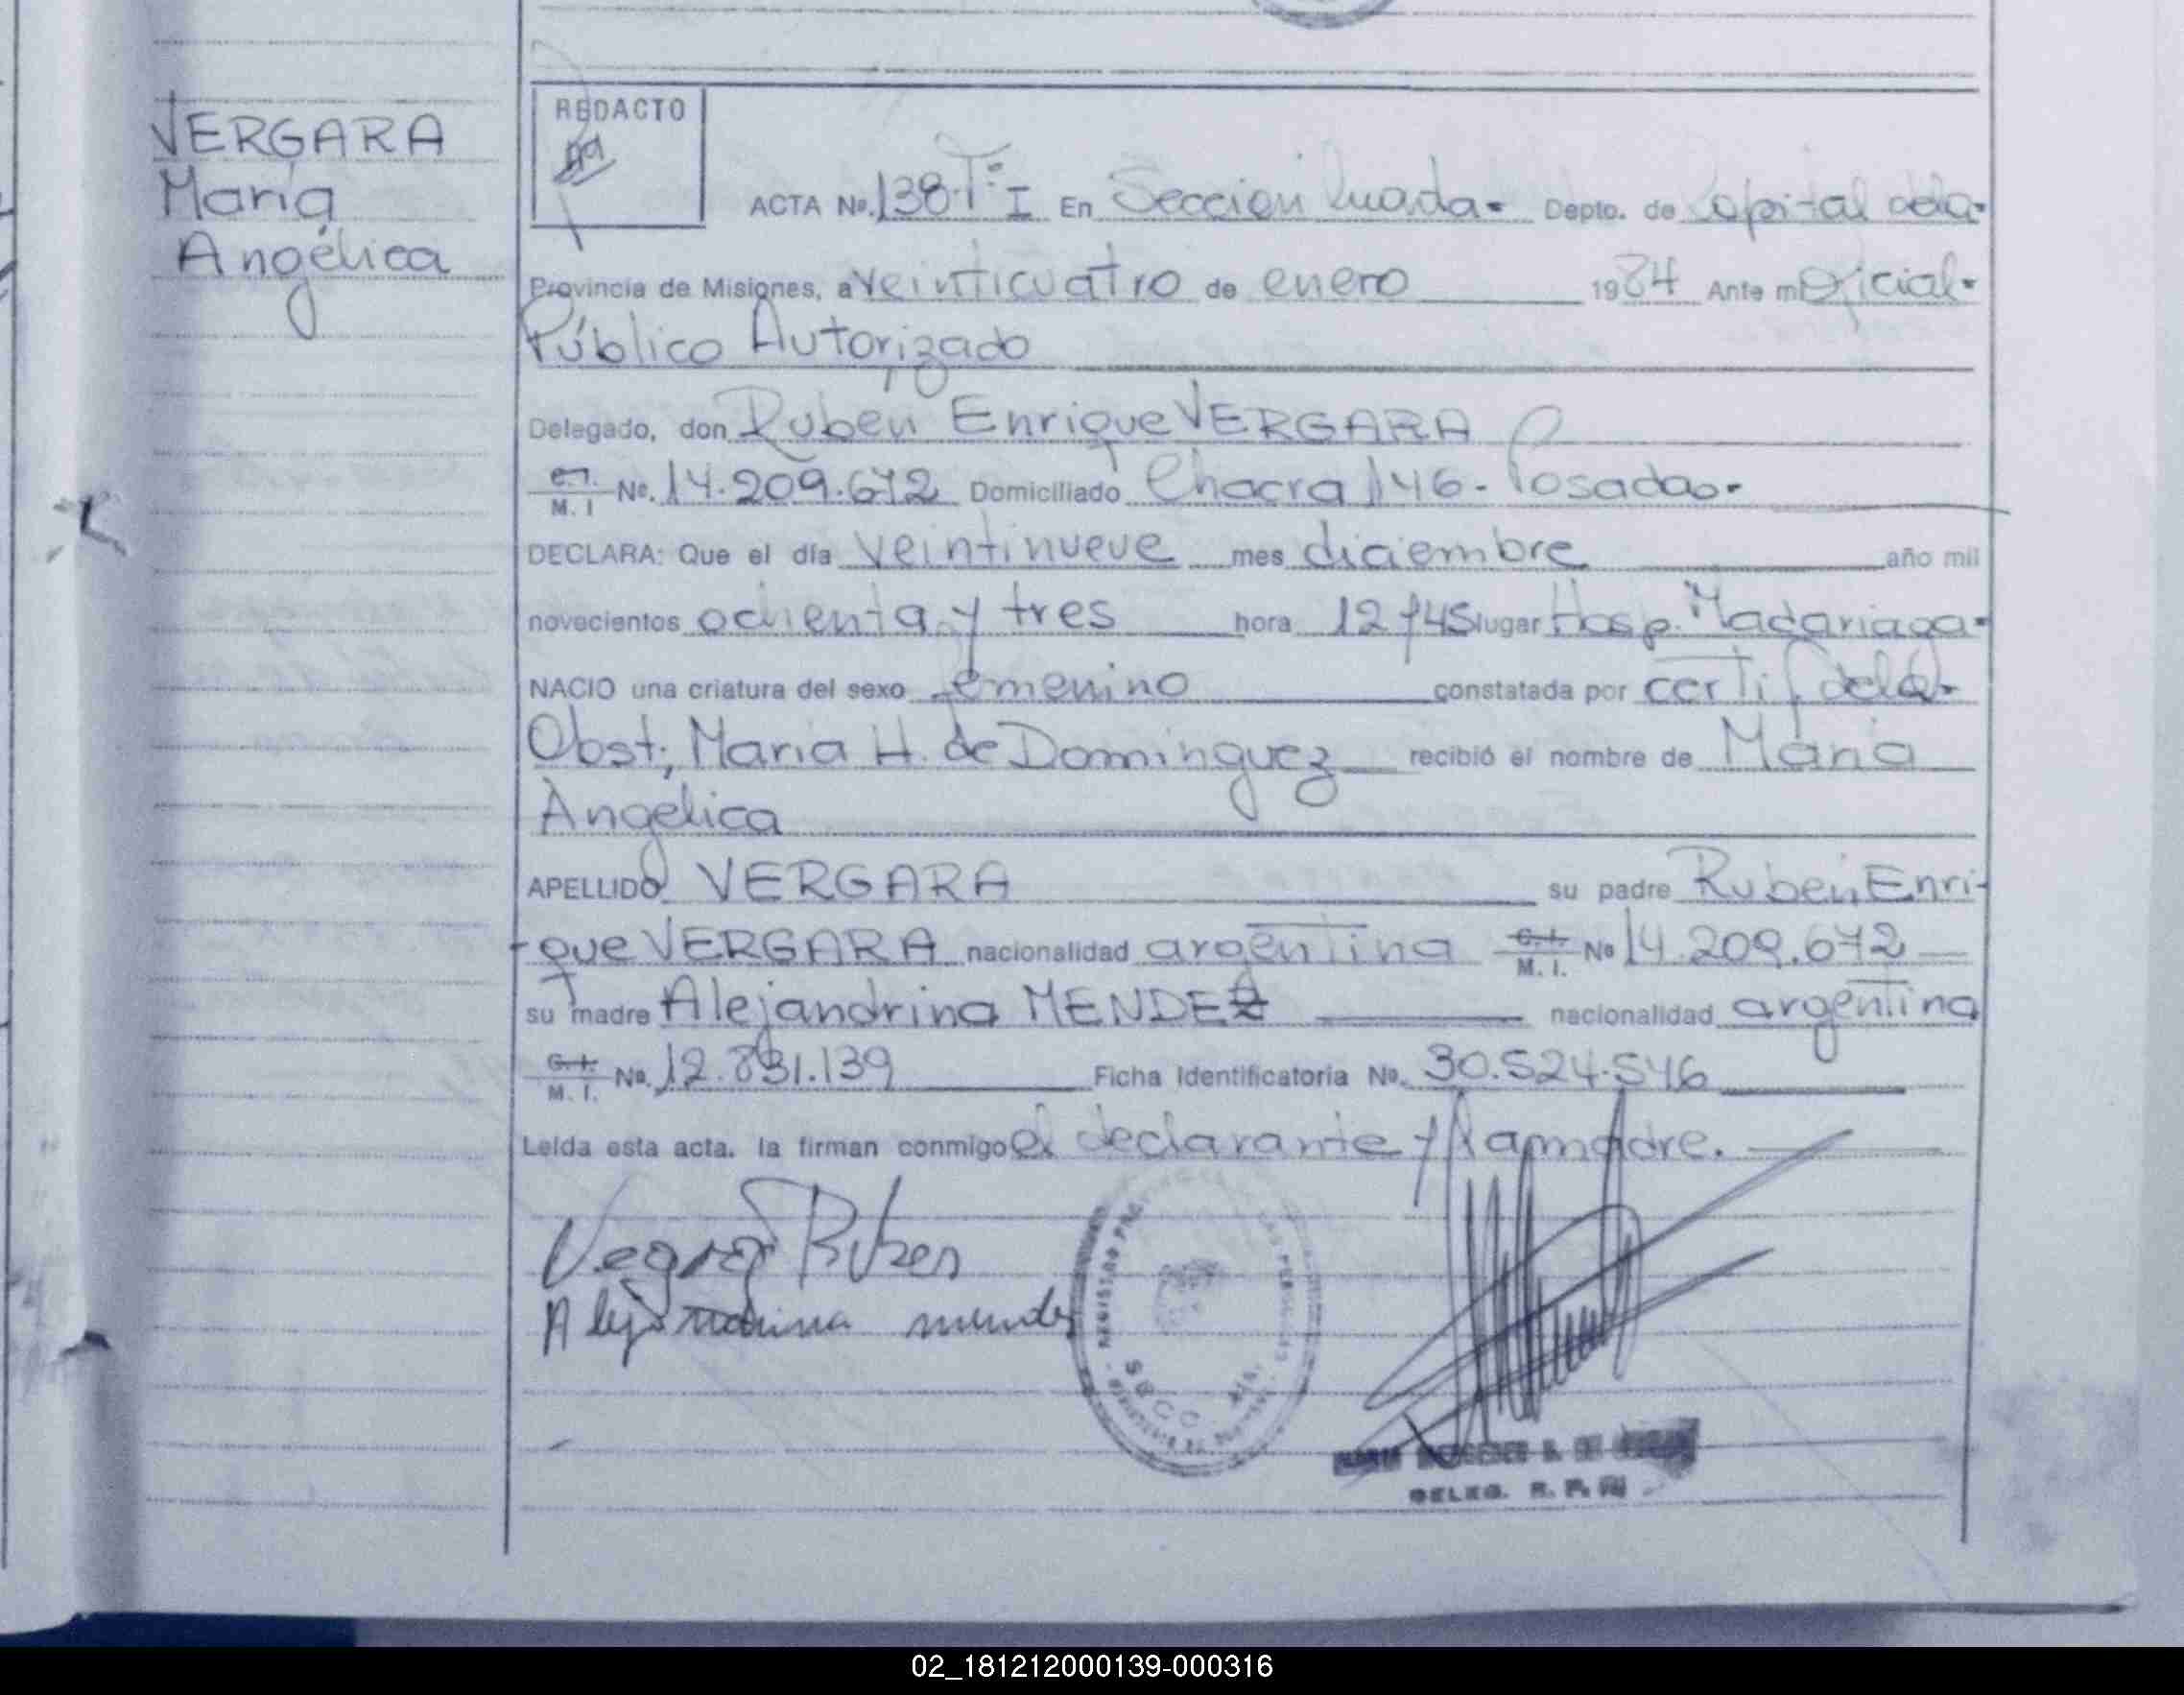 VERGARA
María
Angélica
REDACTO
ACTA No. 138 Tº I En Sección Cuarta Depto. de Capital de la
Provincia de Misiones, a veinticuatro de enero 1984 Ante mi Oficial
Público Autorizado
Delegado, don Rubén Enrique VERGARA
C.I. M. I No. 14.209.672 Domiciliado Chacra 146 - Posadas.
DECLARA: Que el día veintinueve mes diciembre año mil
novecientos ochenta y tres hora 12 y 45 lugar Hosp. Madariaga
NACIO una criatura del sexo femenino constatada por certif de la
Obst; María H. de Dominguez recibió el nombre de María
Angélica
APELLIDO VERGARA su padre Rubén Enri-
que VERGARA nacionalidad argentina C.I. M. I. No 14.209.672
su madre Alejandrina MENDEZ nacionalidad argentina
C.I. M. I. No. 12.831.139 Ficha Identificatoria No. 30.524.546
Leída esta acta. la firman conmigo el declarante y la madre.
Ruben
mendez
REGISTRO
SECC
DELEG. R. P.
02_181212000139-000316